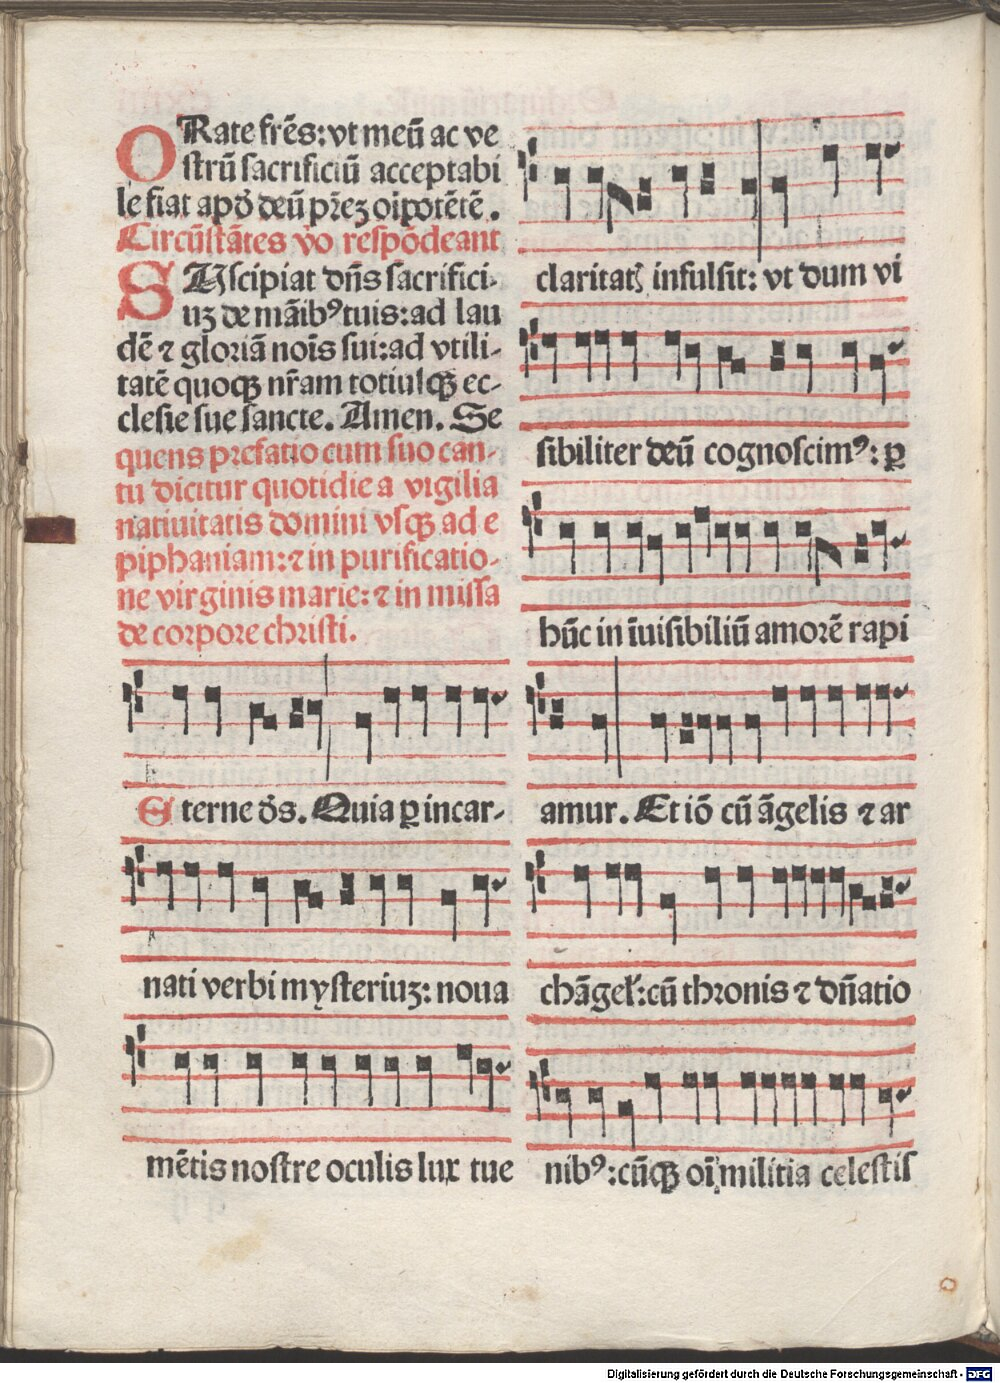 ORate frēs: vt meū ac ve
ſtrū ſacrificiū acceptabi
le fiat apḋ deū p̄rēꝫ oīpotētē.
Circūſtātes v̊o reſpōdeant
SUſcipiat dn̄s ſacrifici-
uꝫ de māibꝰ tuis: ad lau
dē ⁊ gloriā noīs ſui: ad vtili-
tatē quoqꝫ nr̄am totiuſqꝫ ec-
cleſie ſue ſancte. Amen. Se
quens prefatio cum ſuo can-
tu dicitur quotidie a vigilia
natiuitatis domini vſqꝫ ad e
piphaniam: ⁊ in purificatio-
ne virginis marie: ⁊ in miſſa
de corpore chriſti.
Eterne ds̄. Quia ꝑ incar-
nati verbi myſteriuꝫ: noua
mētis noſtre oculis lux tue
claritatꝭ infulſit: vt dum vi
ſibiliter deū cognoſcimꝰ: ꝑ
hūc in īuiſibiliū amorē rapi
amur. Et iō cū āgelis ⁊ ar
chāgeł: cū thronis ⁊ dn̄atio
nibꝰ: cūqꝫ oī militia celeſtiſ
Digitalisierung gefördert durch die Deutsche Forschungsgemeinschaft - DFG